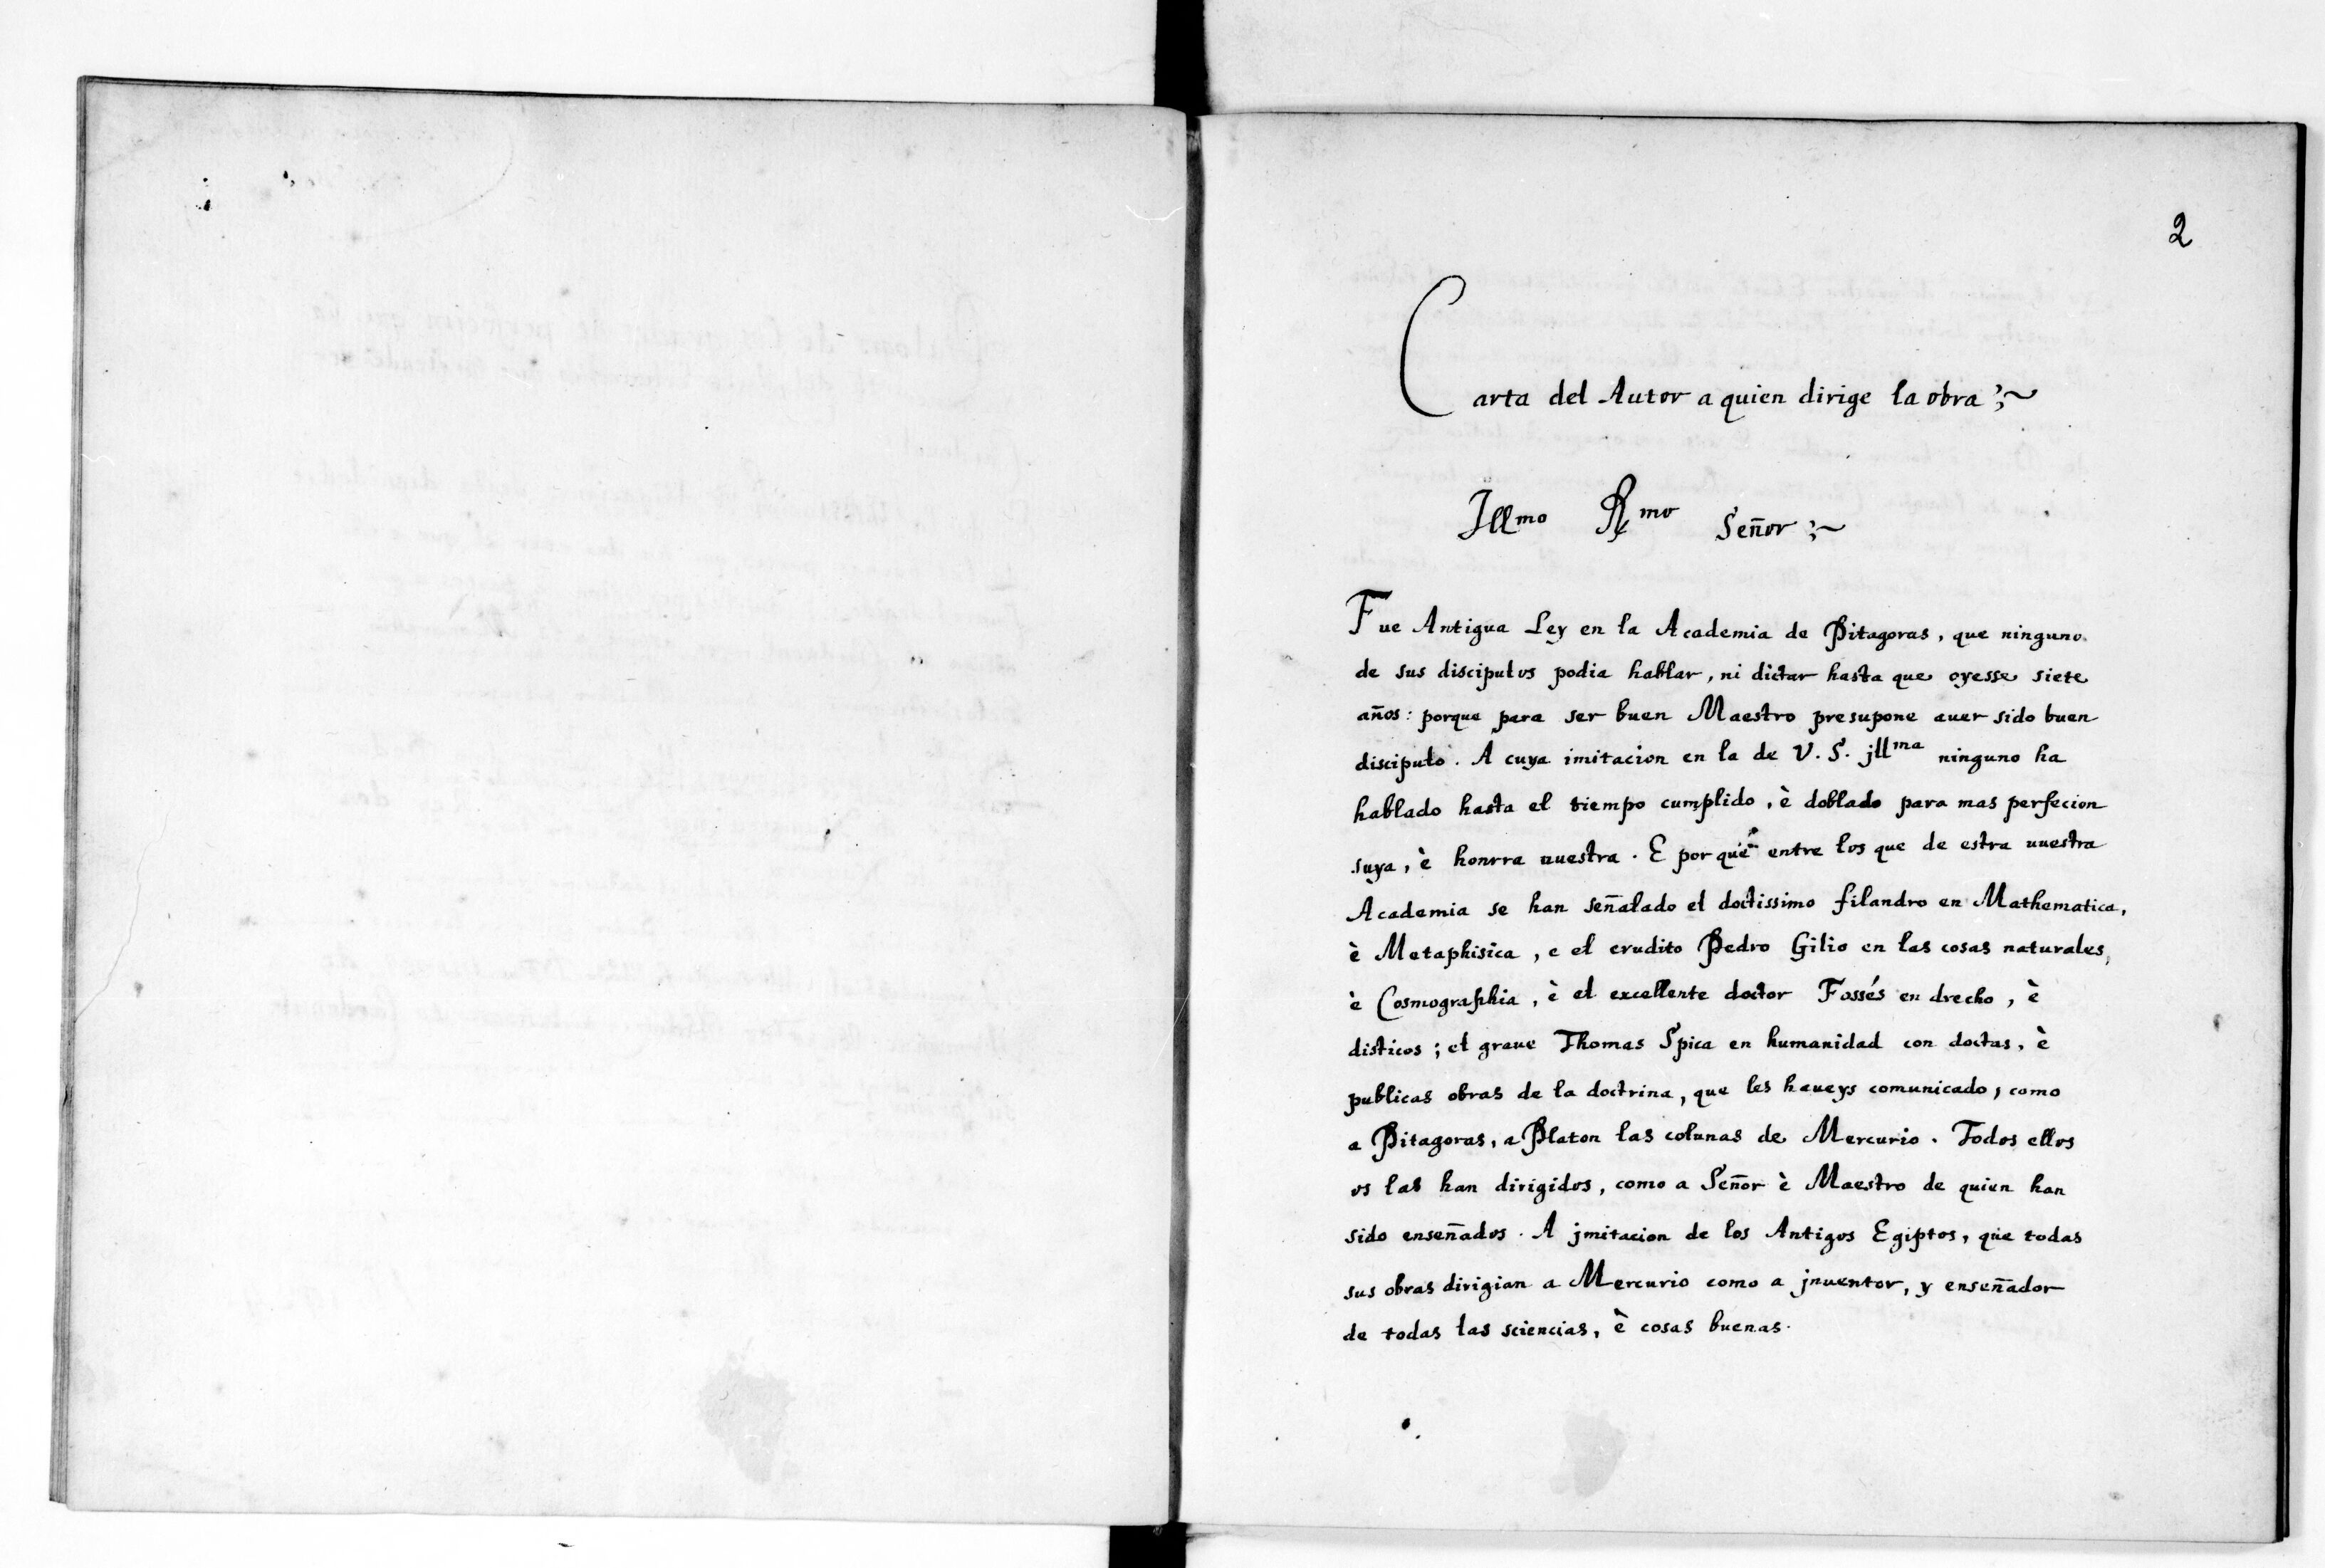 2
Carta del Autor a quien dirige la obra
Illmo Rmo Señor
Fue Antigua Ley en la Academia de Pitagoras, que ninguno
de sus discipulos podia hablar, ni dictar hasta que oyesse siete
años: porque para ser buen Maestro presupone auer sido buen
discipulo. A cuya imitacion en la de V. S. jllma ninguno ha
hablado hasta el tiempo cumplido, è doblado para mas perfecion
suya, è honrra uuestra. E porque entre los que de estra uuestra
Academia se han señalado el doctissimo filandro en Mathematica,
è Metaphisica, e el erudito Pedro Gilio en las cosas naturales,
è Cosmographia, è el excellente doctor Fossés en drecho, è
disticos; el graue Thomas Spica en humanidad con doctas, è
publicas obras de la doctrina, que les haueys comunicado, como
a Pitagoras, a Platon las colunas de Mercurio. Todos ellos
os las han dirigidos, como a Señor è Maestro de quien han
sido enseñados. A jmitacion de los Antigos Egiptos, que todas
sus obras dirigian a Mercurio como a jnuentor, y enseñador
de todas las sciencias, è cosas buenas.